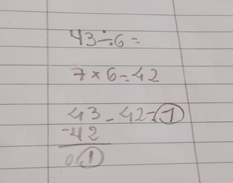 43÷6=
7×6=42
43-42=1
-42
01